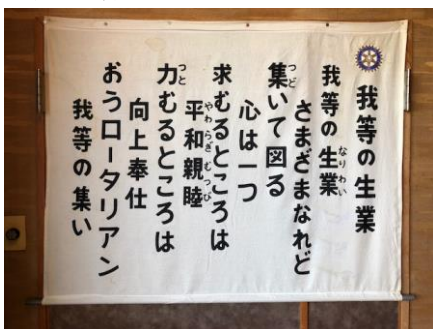 我等の生業
我等の生業
さまざまなれど
集いて図る
心は一つ
求むるところは
平和親睦
力むるところは
向上奉仕
おうロータリアン
我等の集い